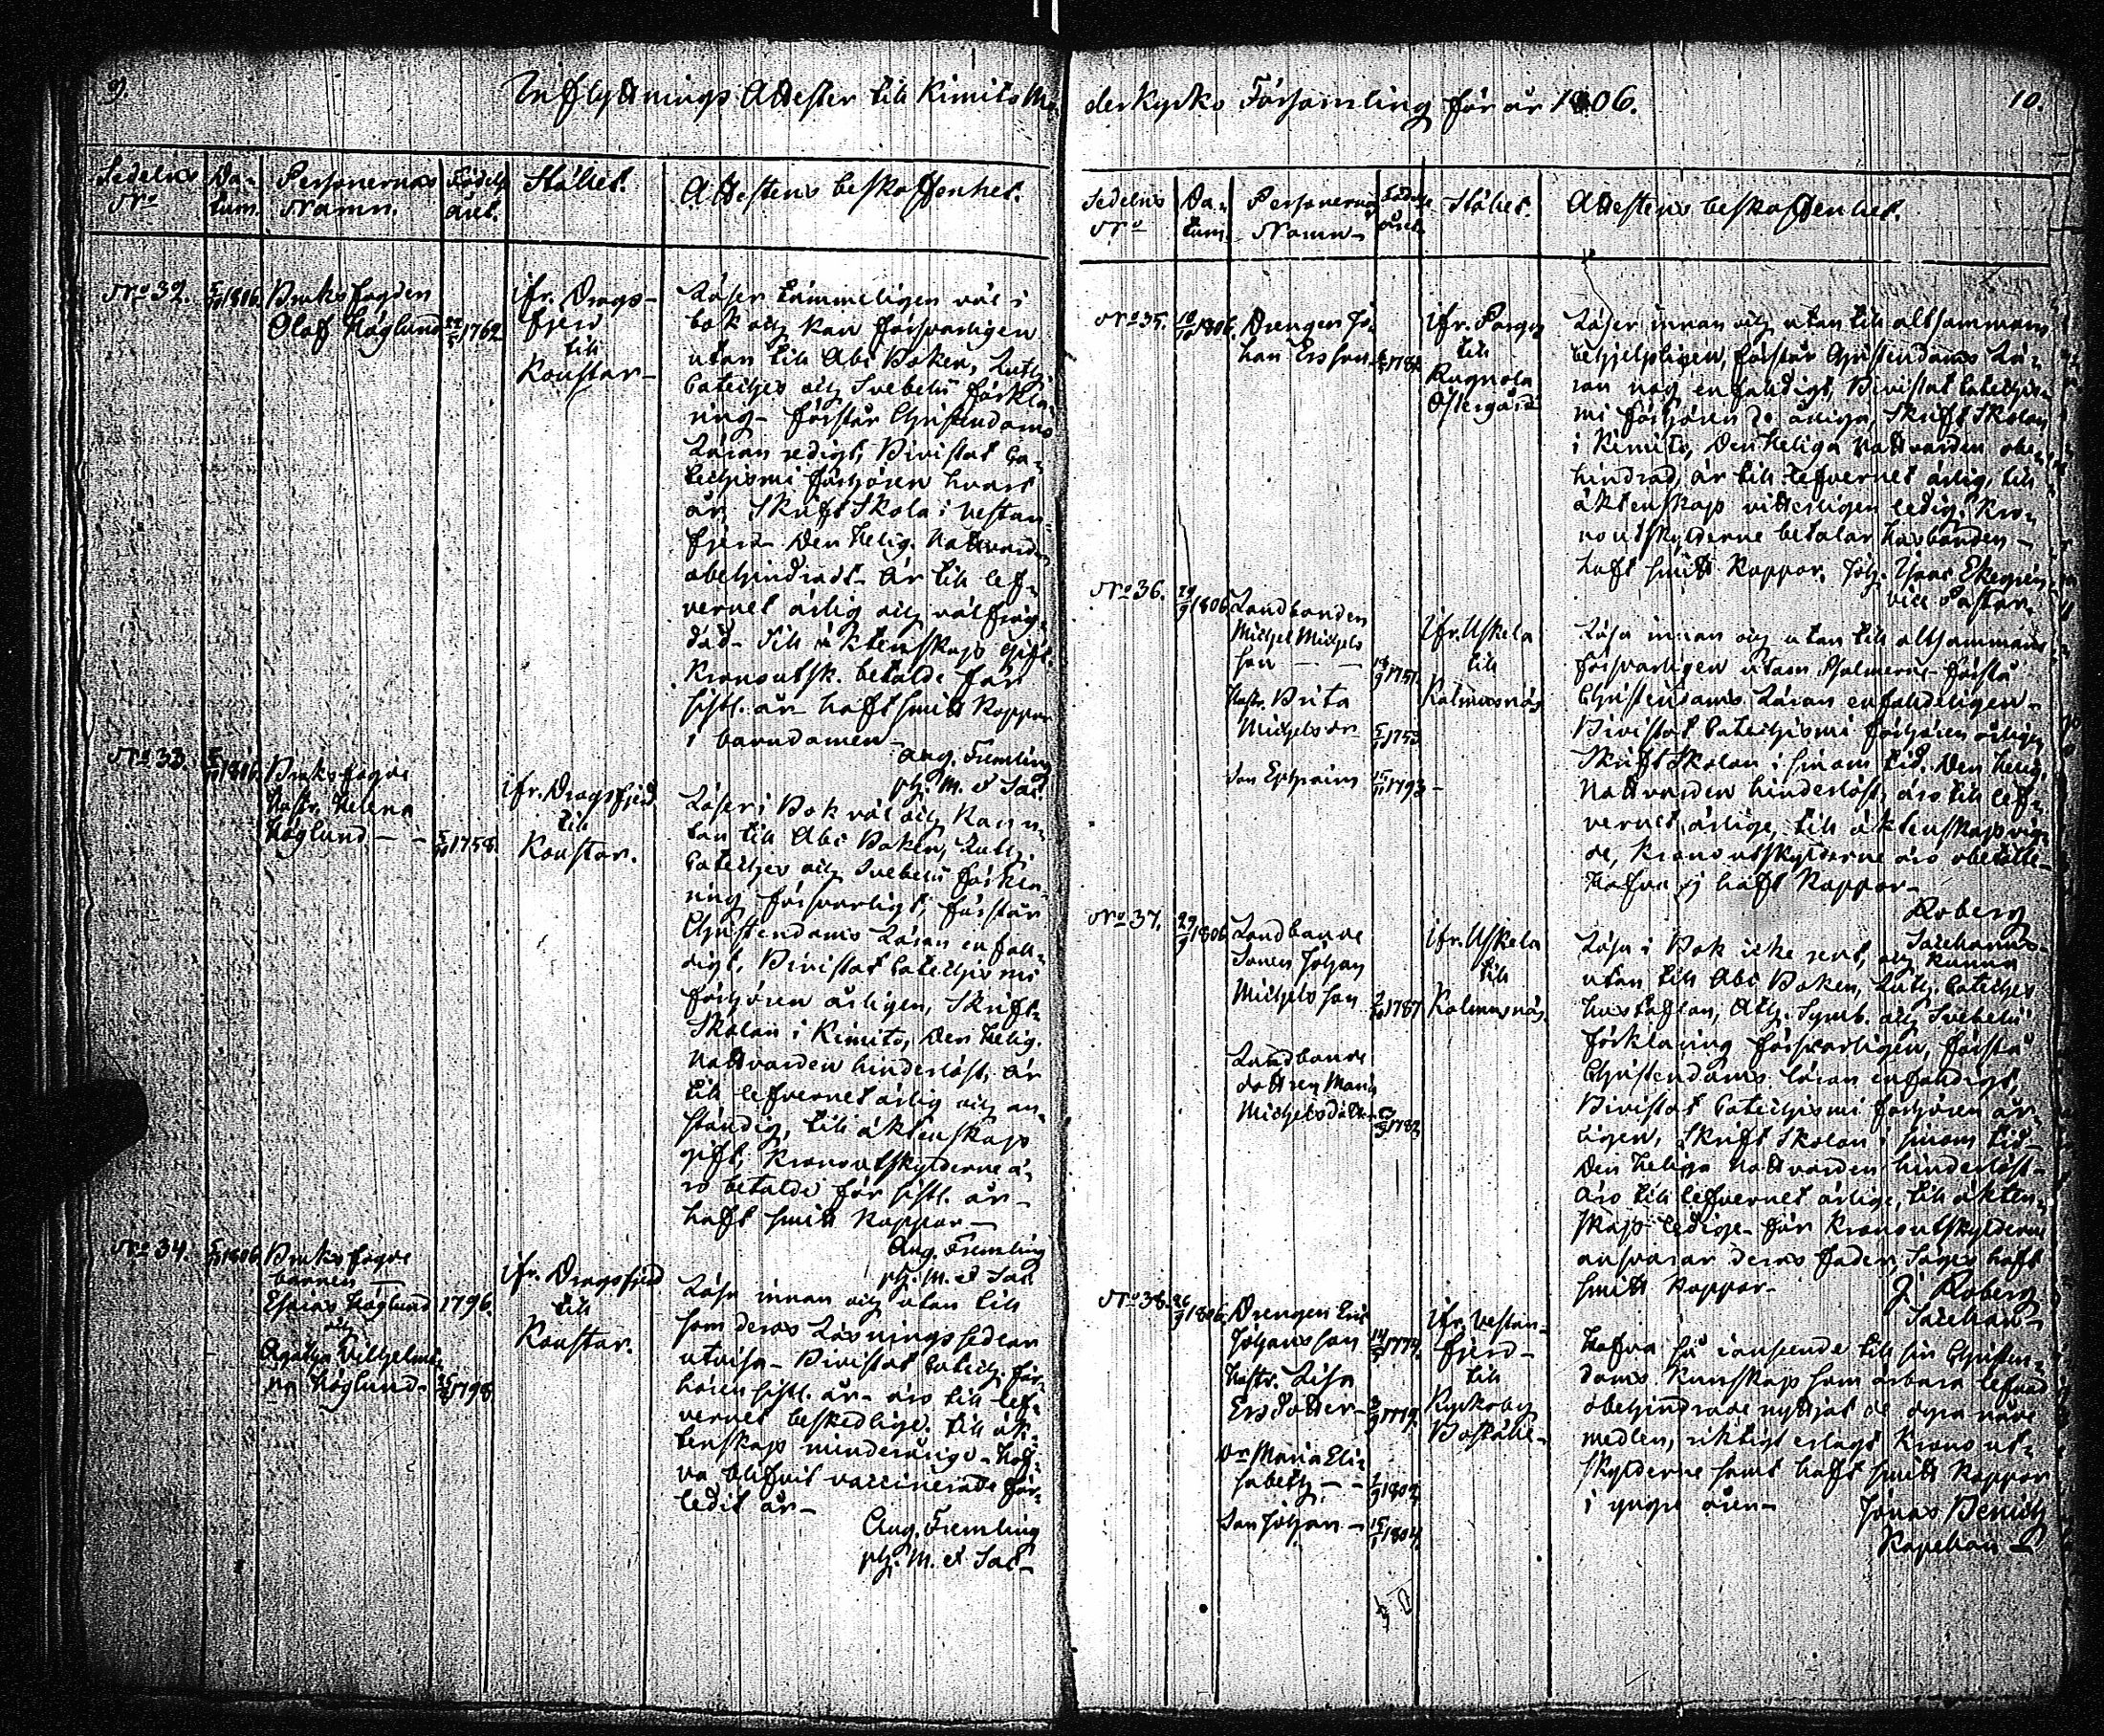 9.
Inflyttnings Attester till Kimito Mo
Sedelns No
Da-tum.
Personernas Namn.
Födelse året.
Stället.
Attestens beskaffenhet.
No 32.
1806.
Bruksfogden
Olof Höglund
1762
ifr. Drags-
fjerd
till
Konstar-
Läser tämmeligen väl i
bok och kan försvarligen
utan till Abc Boken, Luth.
Cateches och Svebelii förkla-
ring- förstår Christendoms
Läran redigt, Bivistat Ca-
techismi förhören hvart
år, Skrift Skola i Vestan-
fjerd- Den Helig. Nattvarden
obehindradt- Är till lef-
vernet ärlig och välfräg-
dad- Till äktenskap gift.
Kronoutsk. betalde för
sistl. år- haft smitt Koppor
i barndomen-
Aug. Fremling
ph. M. et Sac.
No 33.
1806.
Bruksfogde
Hustr. Helena
Höglund - -
1758.
ifr. Dragsfjerd
till
Konstar.
Läser i Bok väl och kan u-
tan till Abc Boken, Luth.
Cateches och Svebelii förkla-
ring försvarligt, förstår
Christendoms Läran enfal-
digt, Bivistat Catechismi
förhören årligen, Skrift-
Skolan i Kimito, Den Helig.
Nattvarden hinderlöst, är
till lefvernet ärlig och an-
ständig, till äktenskap
gift, Kronoutskylderne ä-
ro betalde för sistl. år-
haft smitt Koppor-
Aug. Fremling
ph. M. et Sac.
No 34.
1806.
Bruksfogde
barnen -
Esaias Höglund
och
Agatha Vilhelmi-
na Höglund-
1796.
1798.
ifr. Dragsfjerd
till
Konstar.
Läsa innan och utan till
som deras Läsningssedlar
utvisa- Bivistat Catech. för-
hören sistl. år- äro till lef-
vernet beskedlige. till äk-
tenskap minderårige- Haf-
va blifvit vaccinerade för-
ledit år-
Aug. Fremling
ph. M. et Sac-
derkyrko Församling för år 1806.
10.
Sedelns No
Da-tum.
Personernas Namn-
Födelse året.
Stället.
Attestens beskaffenhet.
No 35.
1806.
Drengen Jo-
han Ersson
ifr. Pargas
till
Rugnola
Östergård
Läser innan och utan till altsammans
behjelpligen, förstår Christendoms Lä-
ran nog enfaldigt, Bivistat Catechis-
mi förhören årliga, Skrift Skolan
i Kimito, Den Heliga Nattvarden obe-
hindrad, är till lefvernet ärlig, till
äktenskap vitterligen ledig. Kro-
noutskylderne betalar husbonden-
haft smitt Koppor.
vice Pastor.
No 36.
1806
Landbonden
Michel Michels
son - -
1751.
Hustr. Brita
Michelsdr
1753
Son Ephraim
1793-
ifr. Uskela
till
Kalmusnäs
Läsa innan och utan till altsammans
försvarligen utom Psalmerne- förstå
Christendoms Läran enfaldeligen-
Bivistat Catechismi förhören årligen
Skrift Skolan i sinom tid. Den Helig.
Nattvarden hinderlöst, äro till lef-
vernet ärlige, till äktenskap vig-
de, Kronoutskylderne äro obetalte-
Hafva ej haft Koppor-
Roberg
Sacellanus-
No 37.
1806
Landbonde
Sonen Johan
Michelsson
1787
Landbonde
dottren Maria
Michelsdotter
1783
ifr. Uskela
till
Kalmusnäs.
Läsa i Bok icke rent, och kunna
utan till Abc Boken, Luth. Cateches
hustaflan, Ath. Symb. och Svebelii
förklaring försvarligen, förstå
Christendoms läran enfaldigt,
Bivistat Catechismi förhören år-
ligen, Skrift Skolan i sinom tid-
Den Heliga Nattvarden hinderlöst-
äro till lefvernet ärlige, till äkten-
skap ledige- för Kronoutskylderne
ansvarar deras fader, Säges haft
smitt Koppor-
J. Roberg
Sacellan-
No 38.
1806.
Drengen Eric
Johansson
1774.
Hustr. Lisa
Ersdotter-
Dr Maria Eli-
sabeth - -
1802.
Son Johan-
1804.
ifr. Vestan-
fjerd-
till
Kyrkoby
Boställe-
Hafva så i anseende till sin Christen-
doms Kunskap som ärbara lefnad
obehindrade nyttjat de dyra nåde
medlen, riktigt erlagt Kronout-
skylderne samt haft smitt Koppor
i yngre åren-
Jonas Benich
Kapellan-